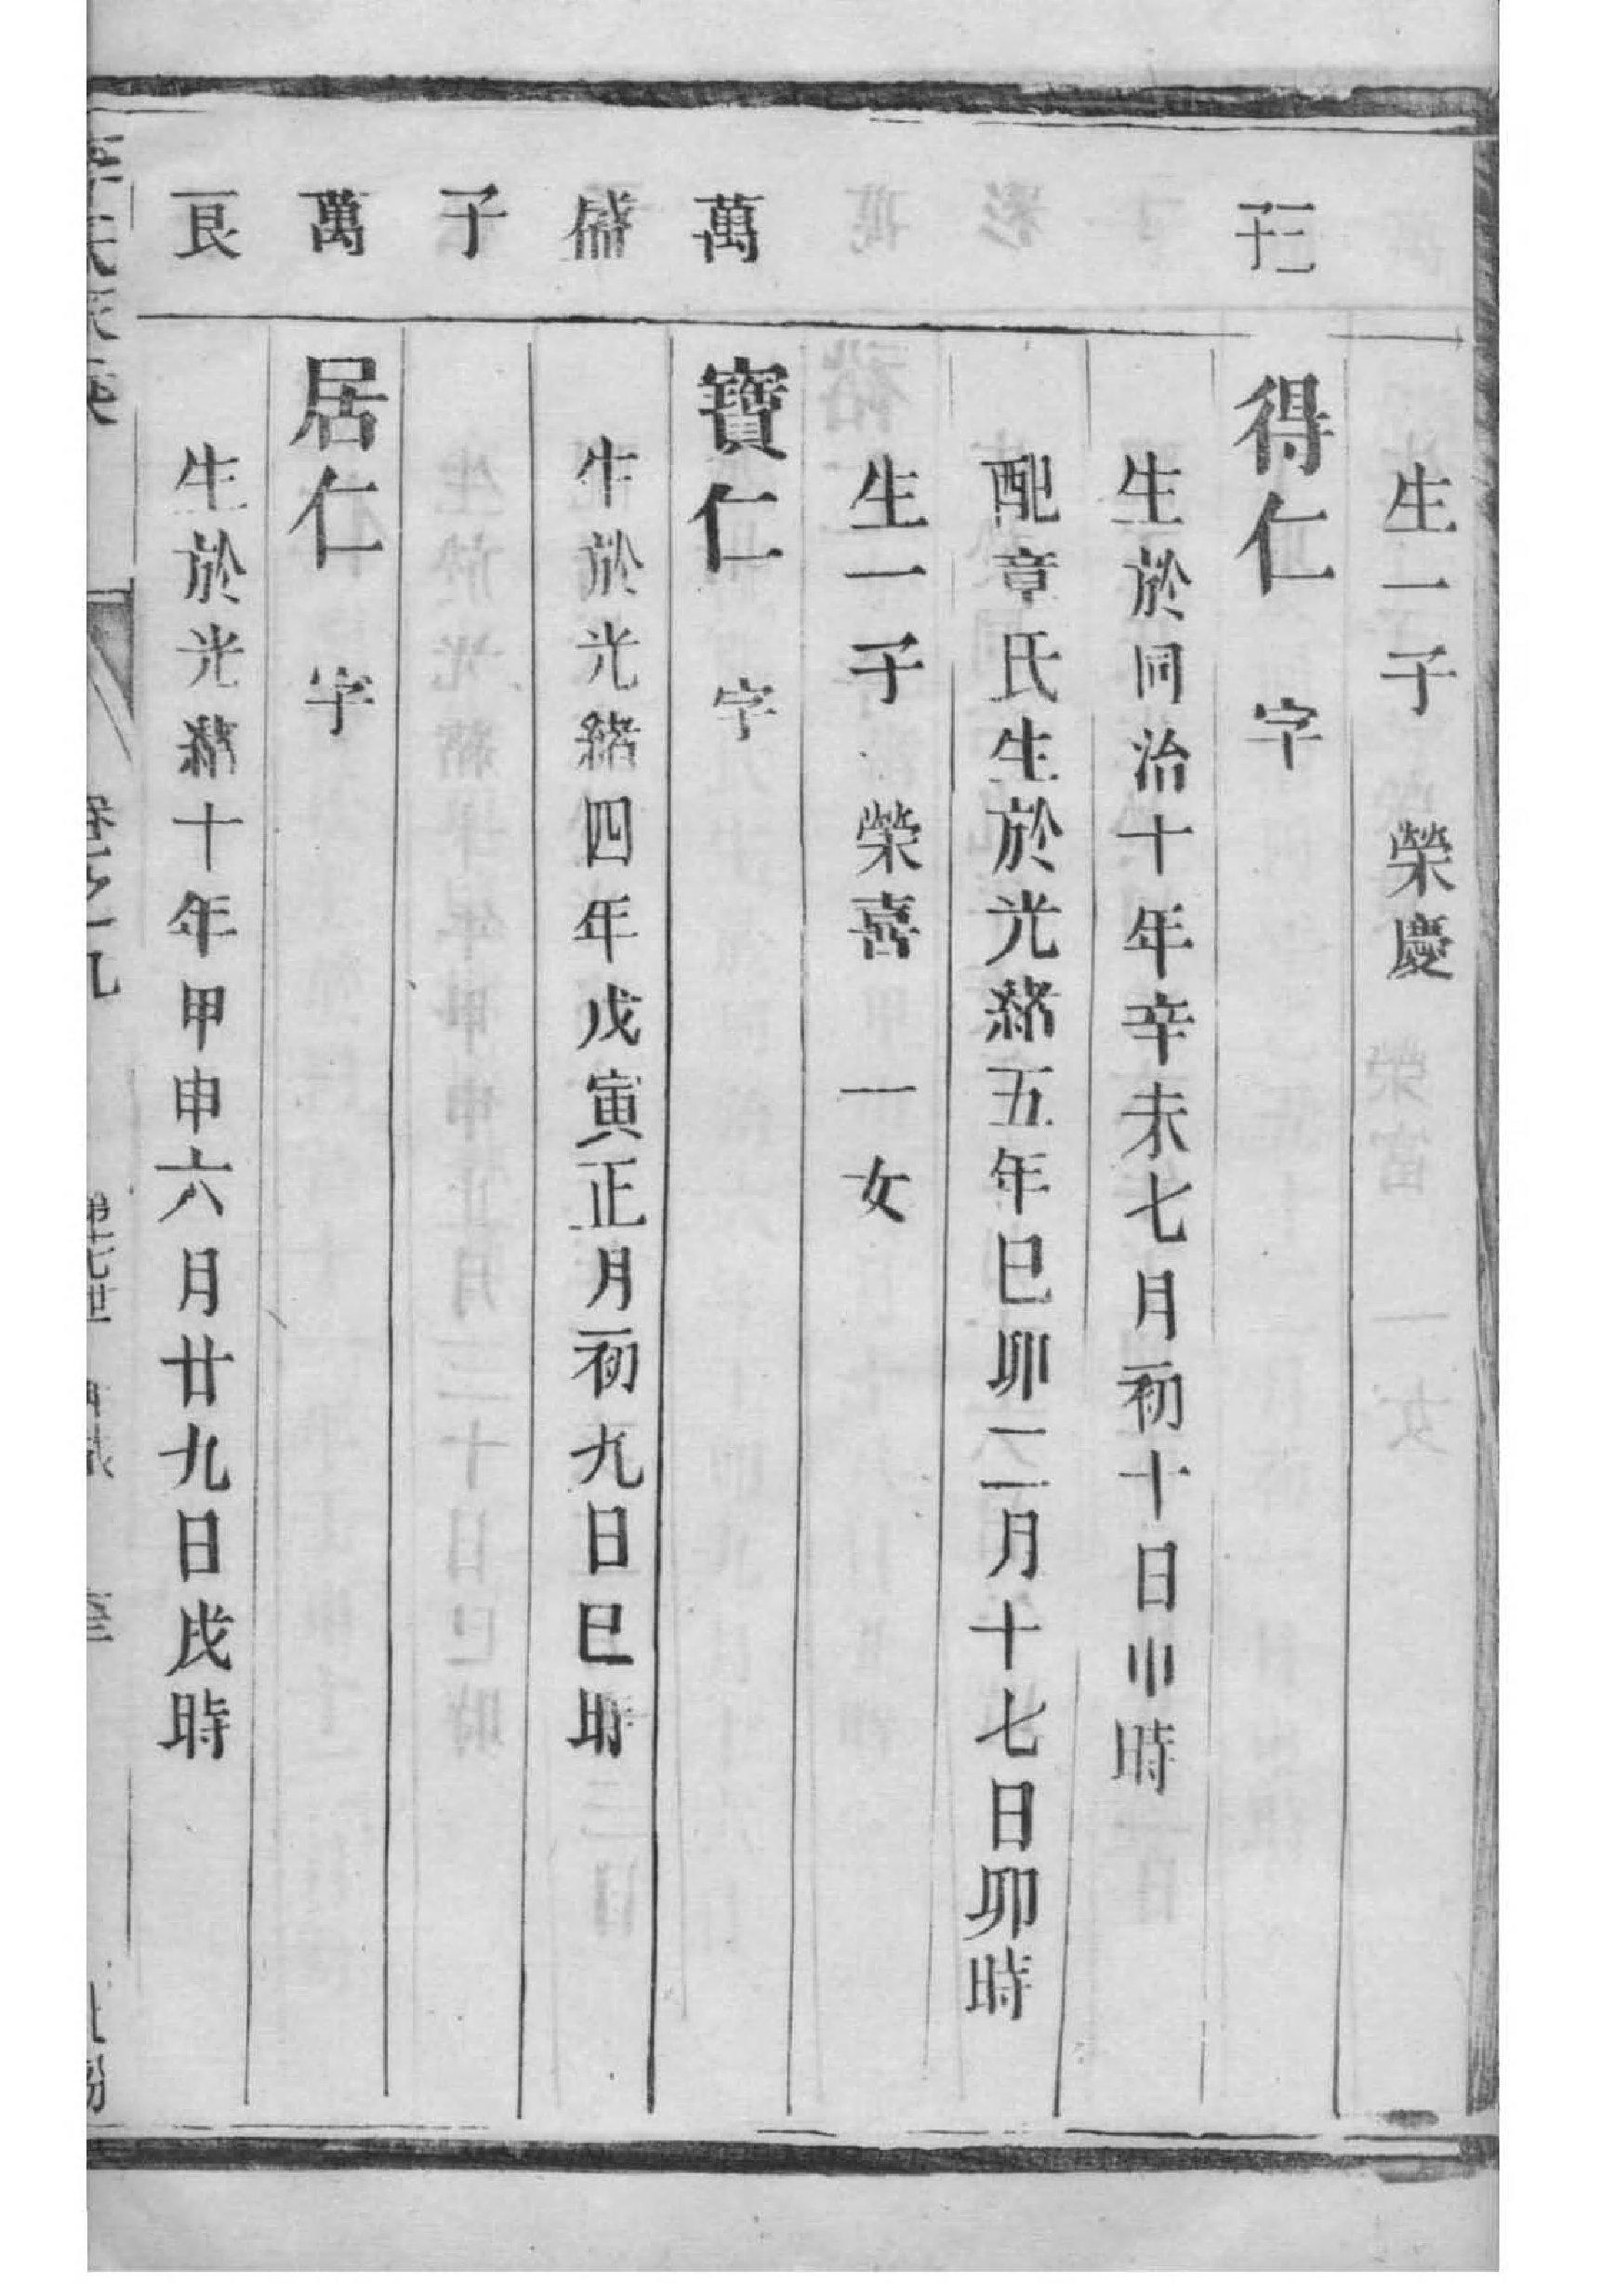 生一子 榮慶
三子
得仁 字
生於同治十年辛未七月初十日申時
配章氏生於光緒五年巳卯二月十七日卯時
生一子 榮喜 一女
萬
寶仁 字
盛
生於光緒四年戊寅正月初九日巳時
子
萬
居仁 字
良
生於光緒十年甲申六月廿九日戌時